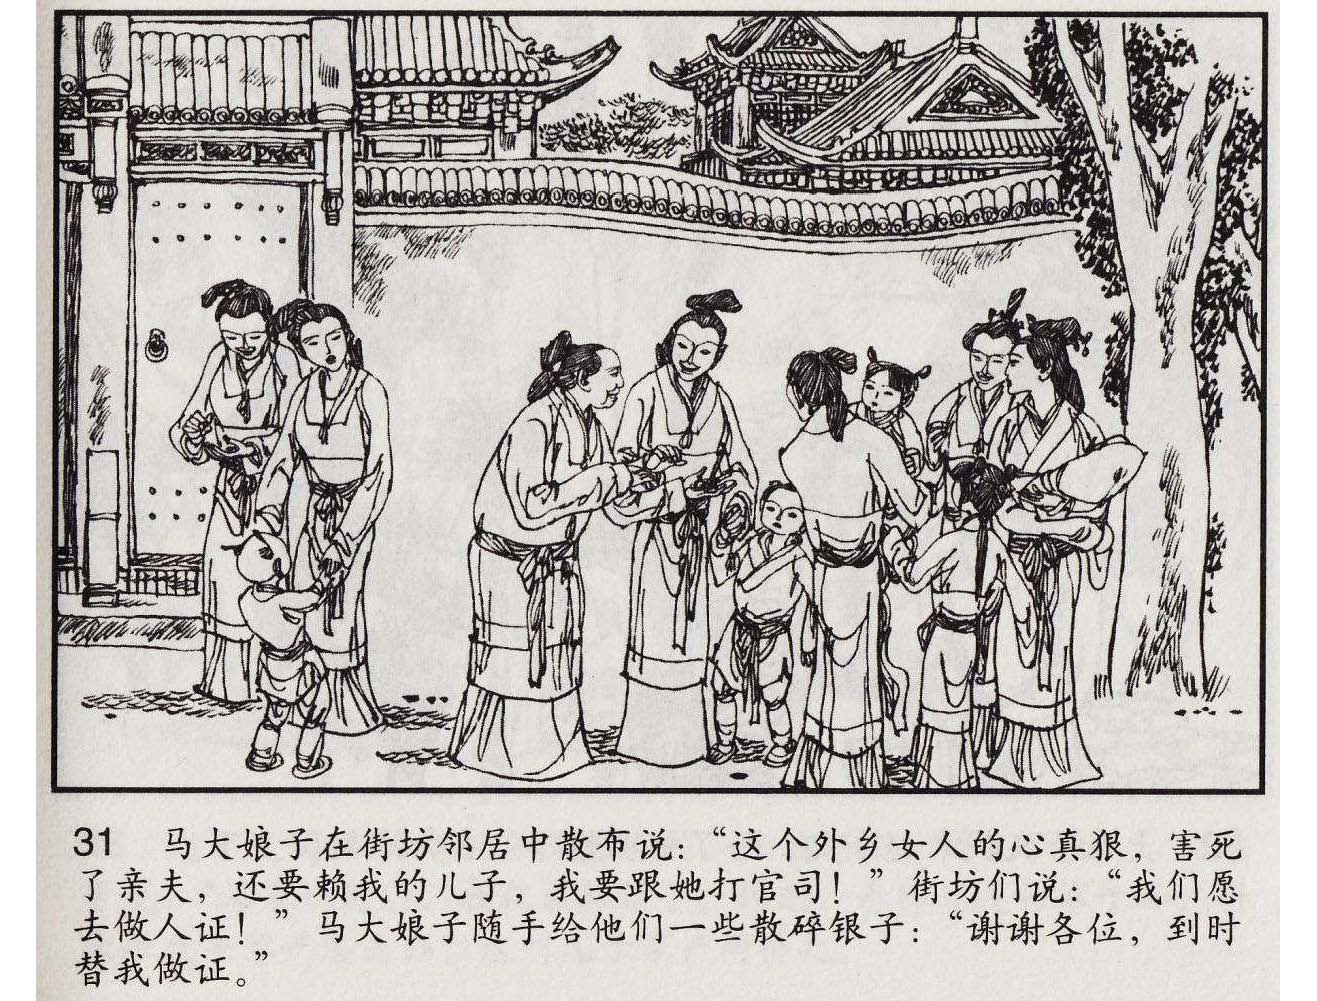 31 马大娘子在街坊邻居中散布说：“这个外乡女人的心真狠，害死
了亲夫，还要赖我的儿子，我要跟她打官司！”街坊们说：“我们愿
去做人证！”马大娘子随手给他们一些散碎银子：“谢谢各位，到时
替我做证。”